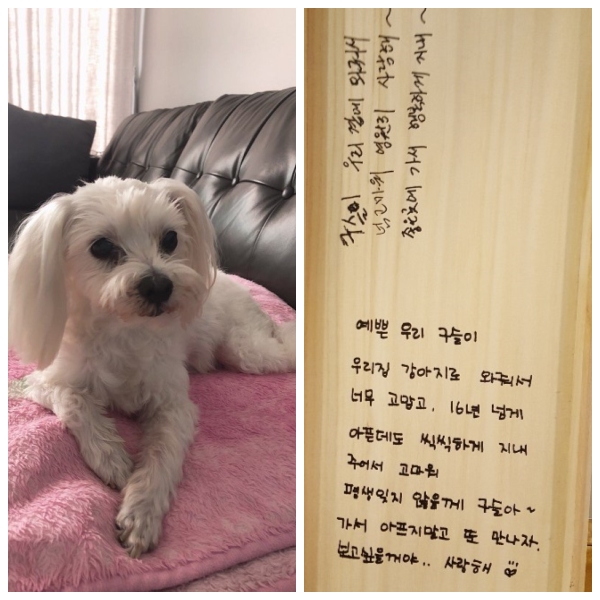 구슬이 우리 곁에 와줘서
넘 고마워 영원히 사랑해~
좋은곳에 가서 행복하게 지내~
예쁜 우리 구슬이
우리집 강아지로 와줘서
너무 고맙고. 16년 넘게
아픈데도 씩씩하게 지내
주어서 고마워
평생잊지 않을께 구슬아~
가서 아프지말고 또 만나자.
보고싶을꺼야.. 사랑해